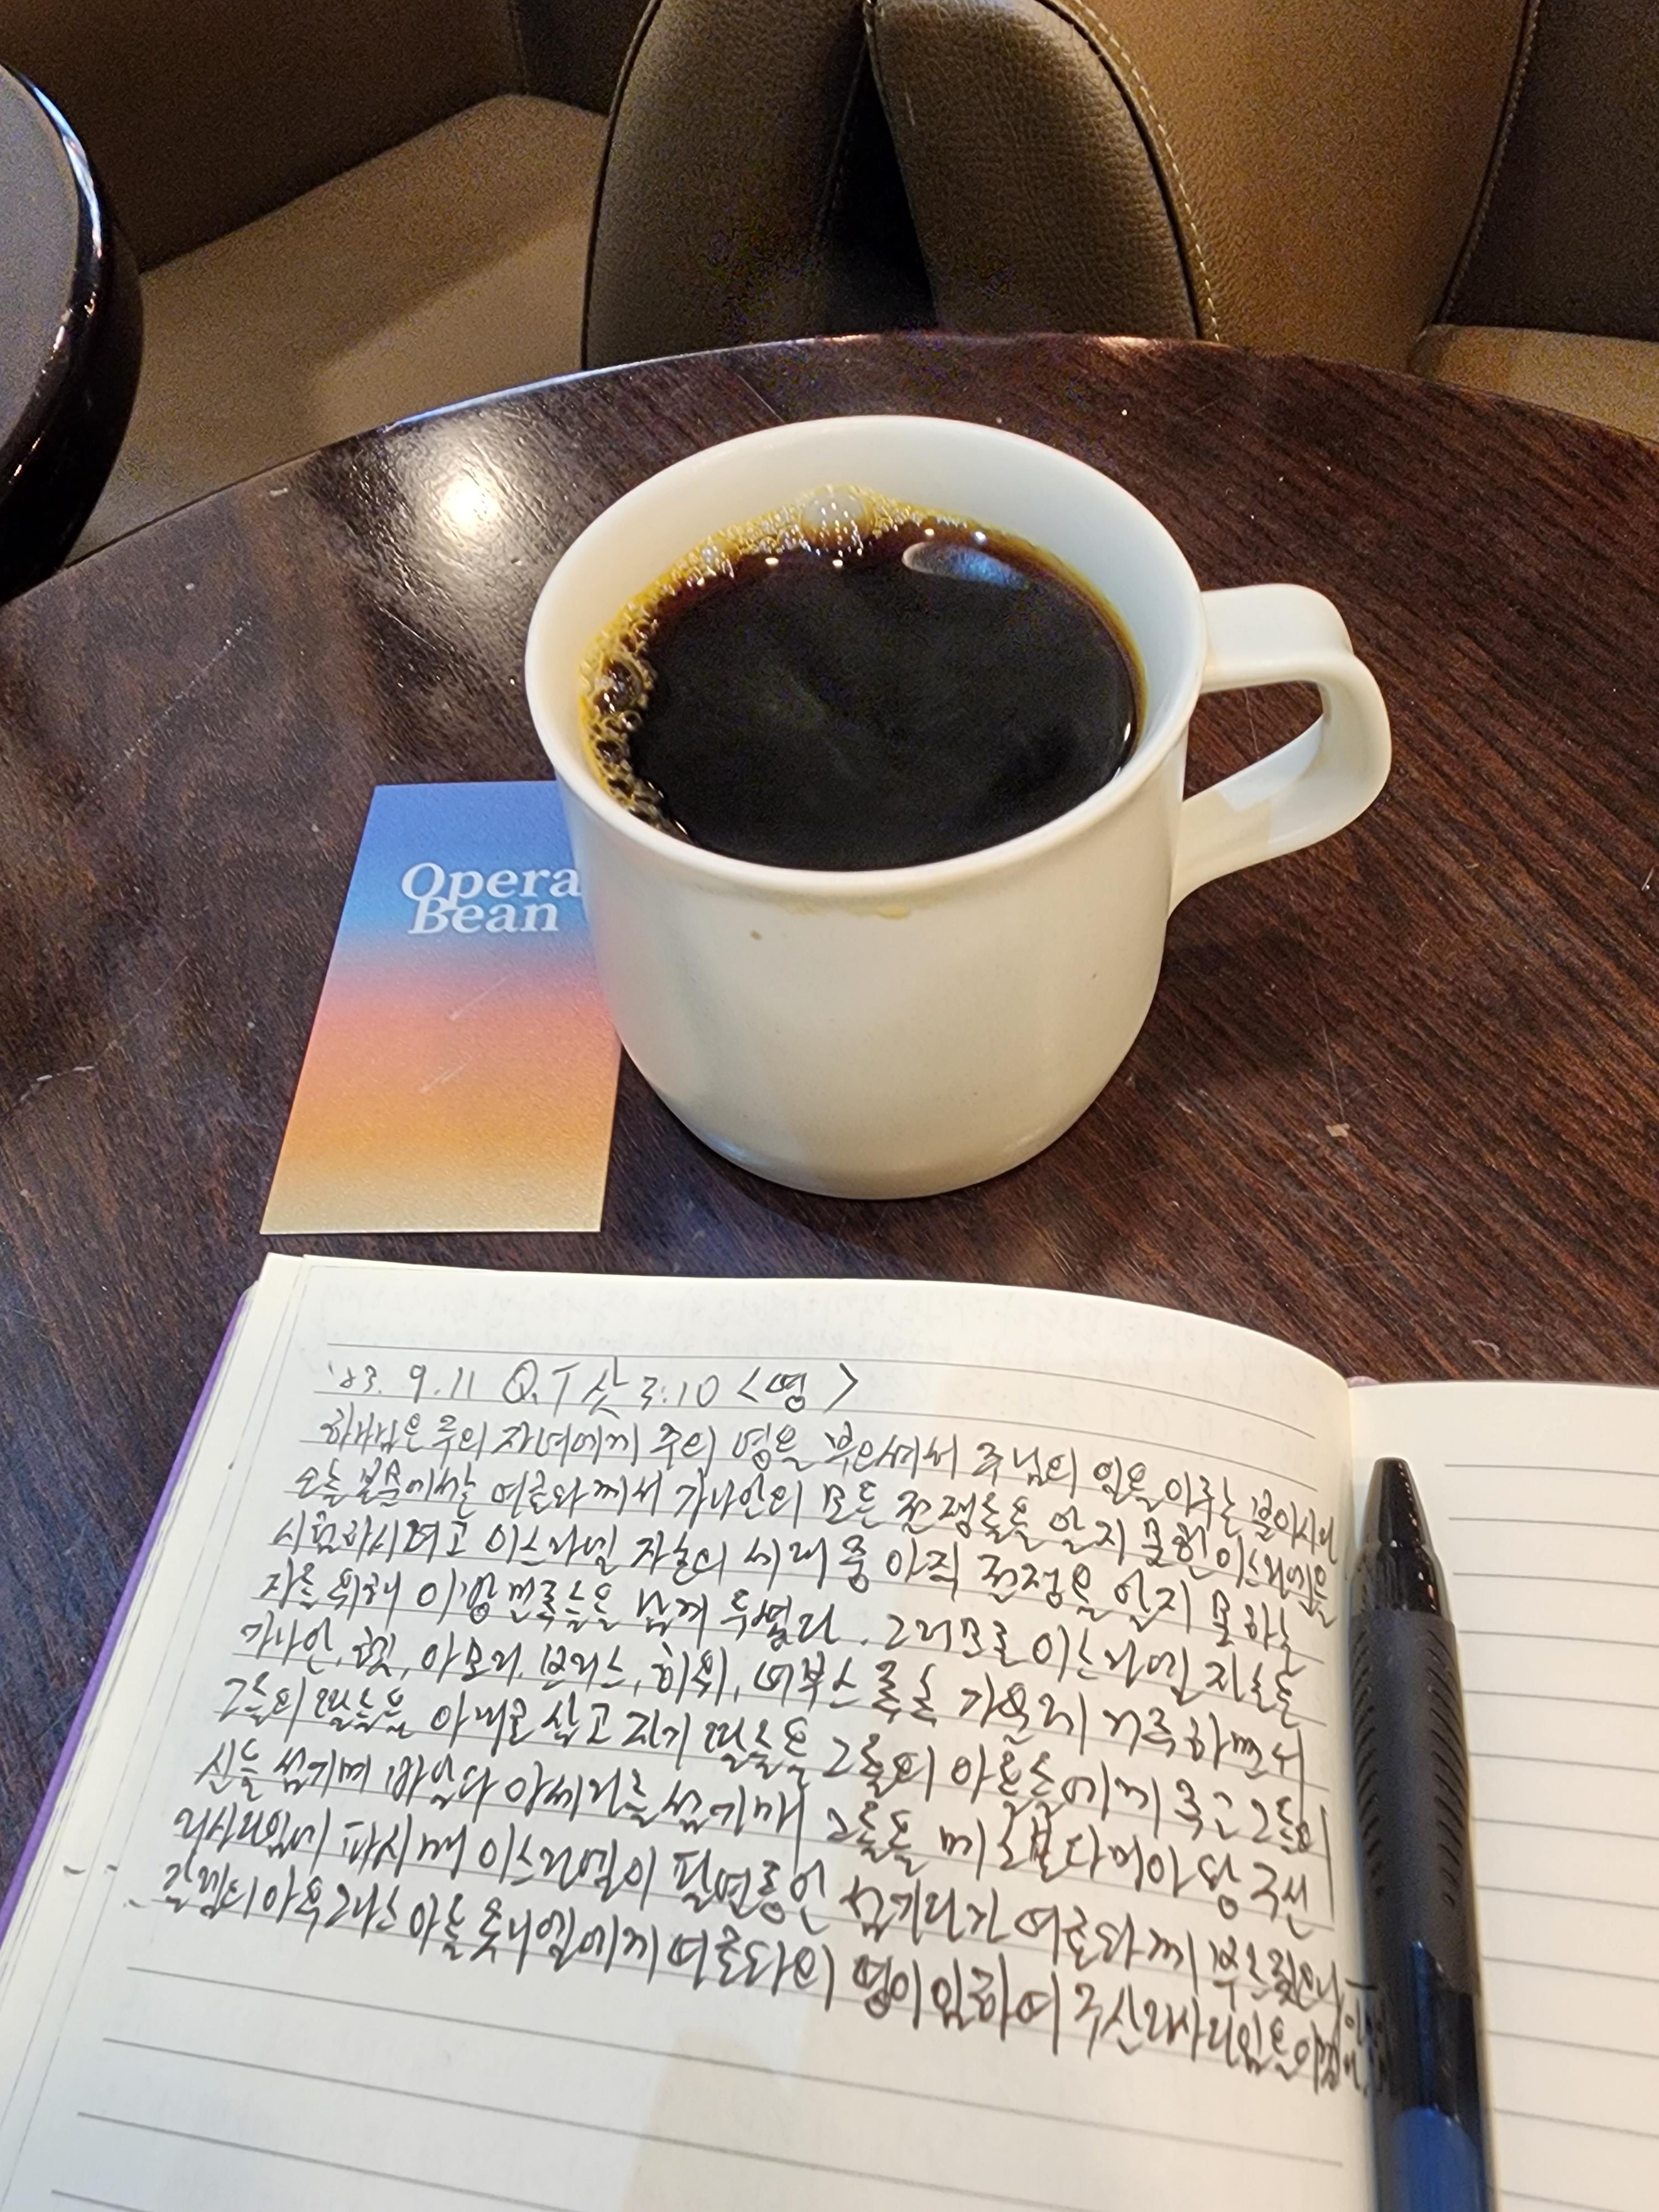 Opera
Bean
'23. 9. 11 Q.T 삿 3:10 <영>
하나님은 주의 자녀에게 주의 영을 부으셔서 주님의 일을 이루는 분이시다
오늘 본문에서는 여호와께서 가나안의 모든 전쟁들을 알지 못한 이스라엘을
시험하시려고 이스라엘 자손의 세대 중 아직 전쟁을 알지 못하는
자를 위해 이방 민족들을 남겨 두셨다. 그러므로 이스라엘 자손은
가나안, 헷, 아모리, 브리스, 히위, 여부스 족속 가운데 거주하면서
그들의 딸들을 아내로 삼고 자기 딸들을 그들의 아들들에게 주고 그들의
신을 섬기며 바알과 아세라를 섬기매 그들을 메소보다미아 왕 구산
리사다임에 파시매 이스라엘이 팔년동안 섬기다가 여호와께 부르짖으니
갈렙의 아우 그나스 아들 옷니엘에게 여호와의 영이 임하여 구산리사다임을